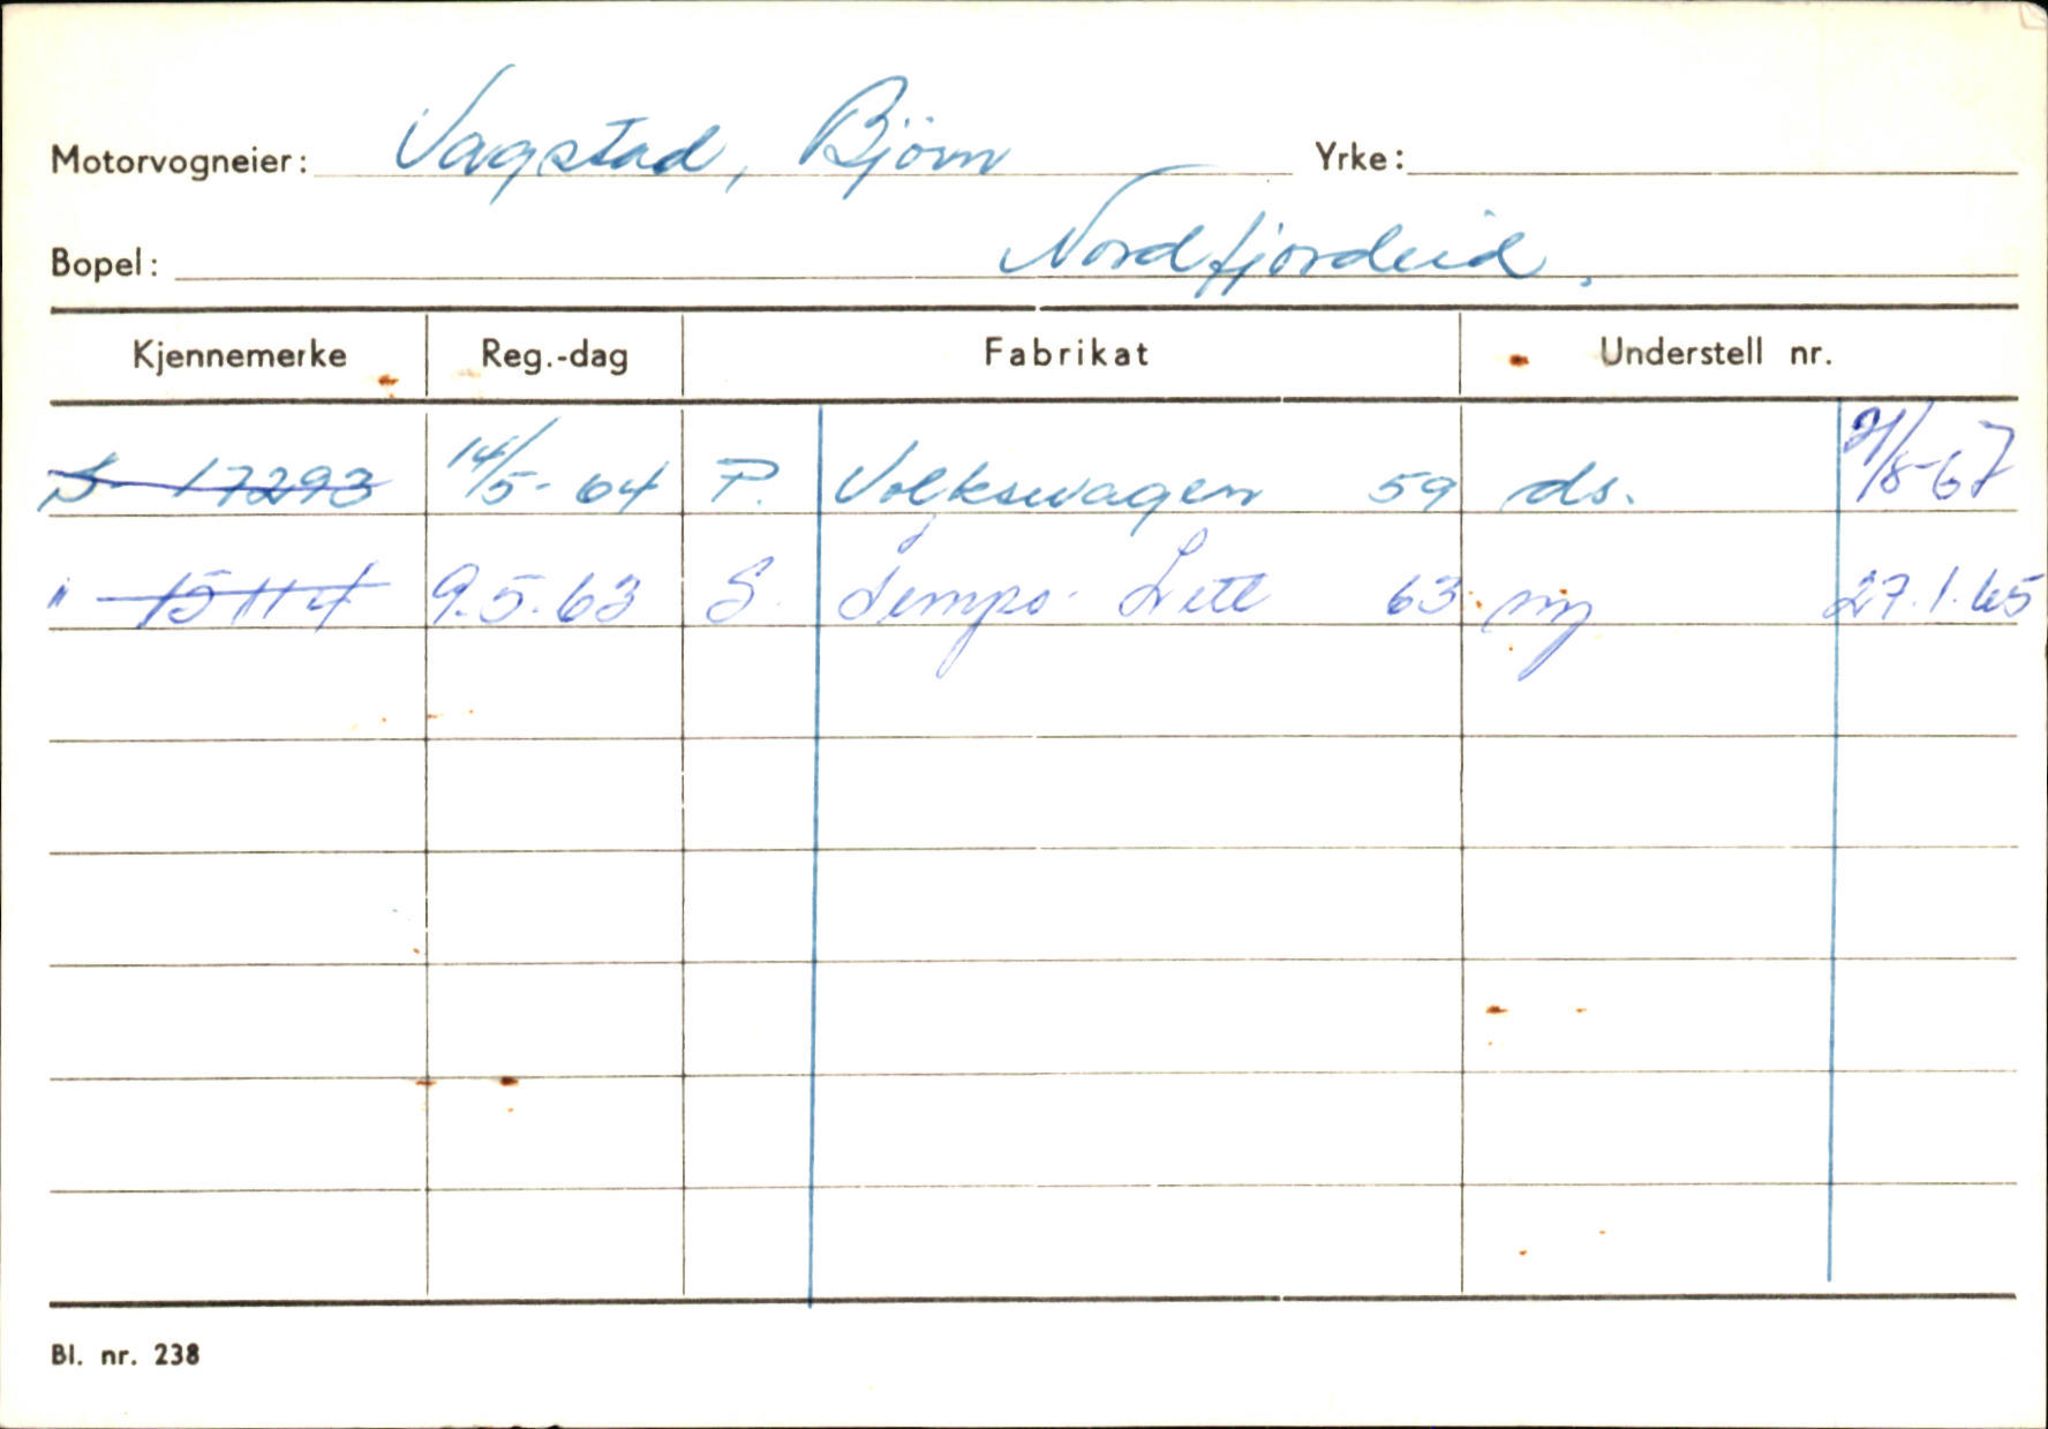 Motorvogneier: Vagstad, Bjørn Yrke:
Bopel: Nordfjordeid.
Kjennemerke Reg.-dag Fabrikat Understell nr.
S- 17293 14/5-64 P. Volkswagen 59 ds. 21/8-67
" 15114 9.5.63 S. Tempo Lett 63 ny 27.1.65
Bl. nr. 238